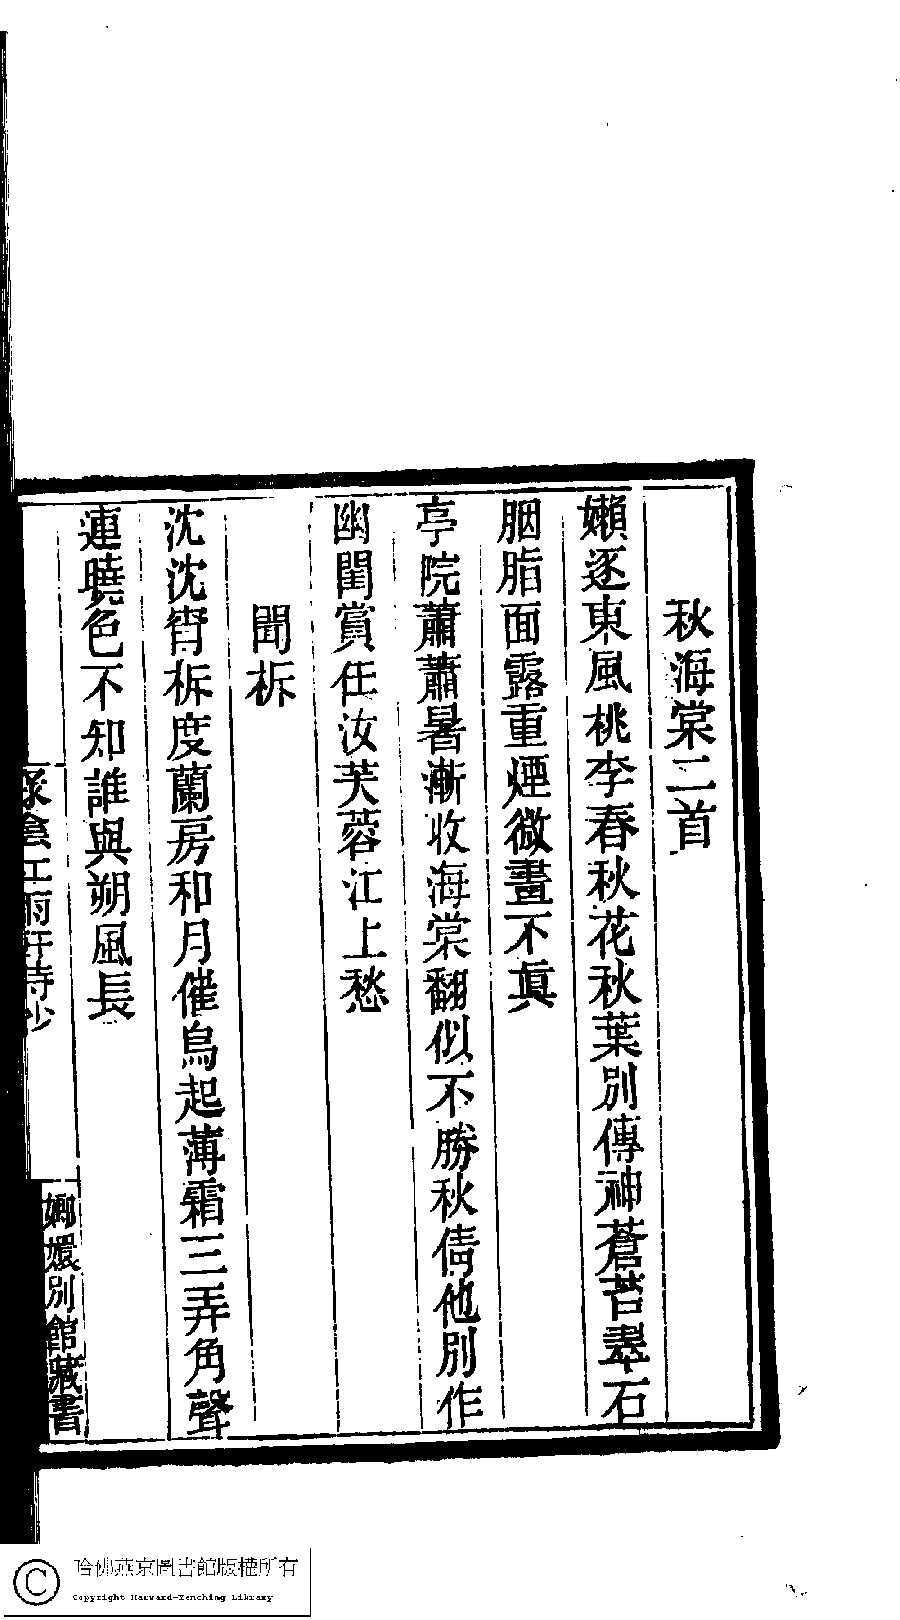 秋海棠二首
嬾逐東風桃李春秋花秋葉別傳神蒼苔翠石
胭脂面露重煙微畫不眞
亭院蕭蕭暑漸收海棠翻似不勝秋倩他別作
幽閨賞任汝芙蓉江上愁
聞柝
沈沈宵柝度蘭房和月催烏起薄霜三弄角聲
連曉色不知誰與朔風長
雨軒詩鈔
嫏嬛別館藏書
哈佛燕京圖書館版權所有
Copyright Harvard-Yenching Library